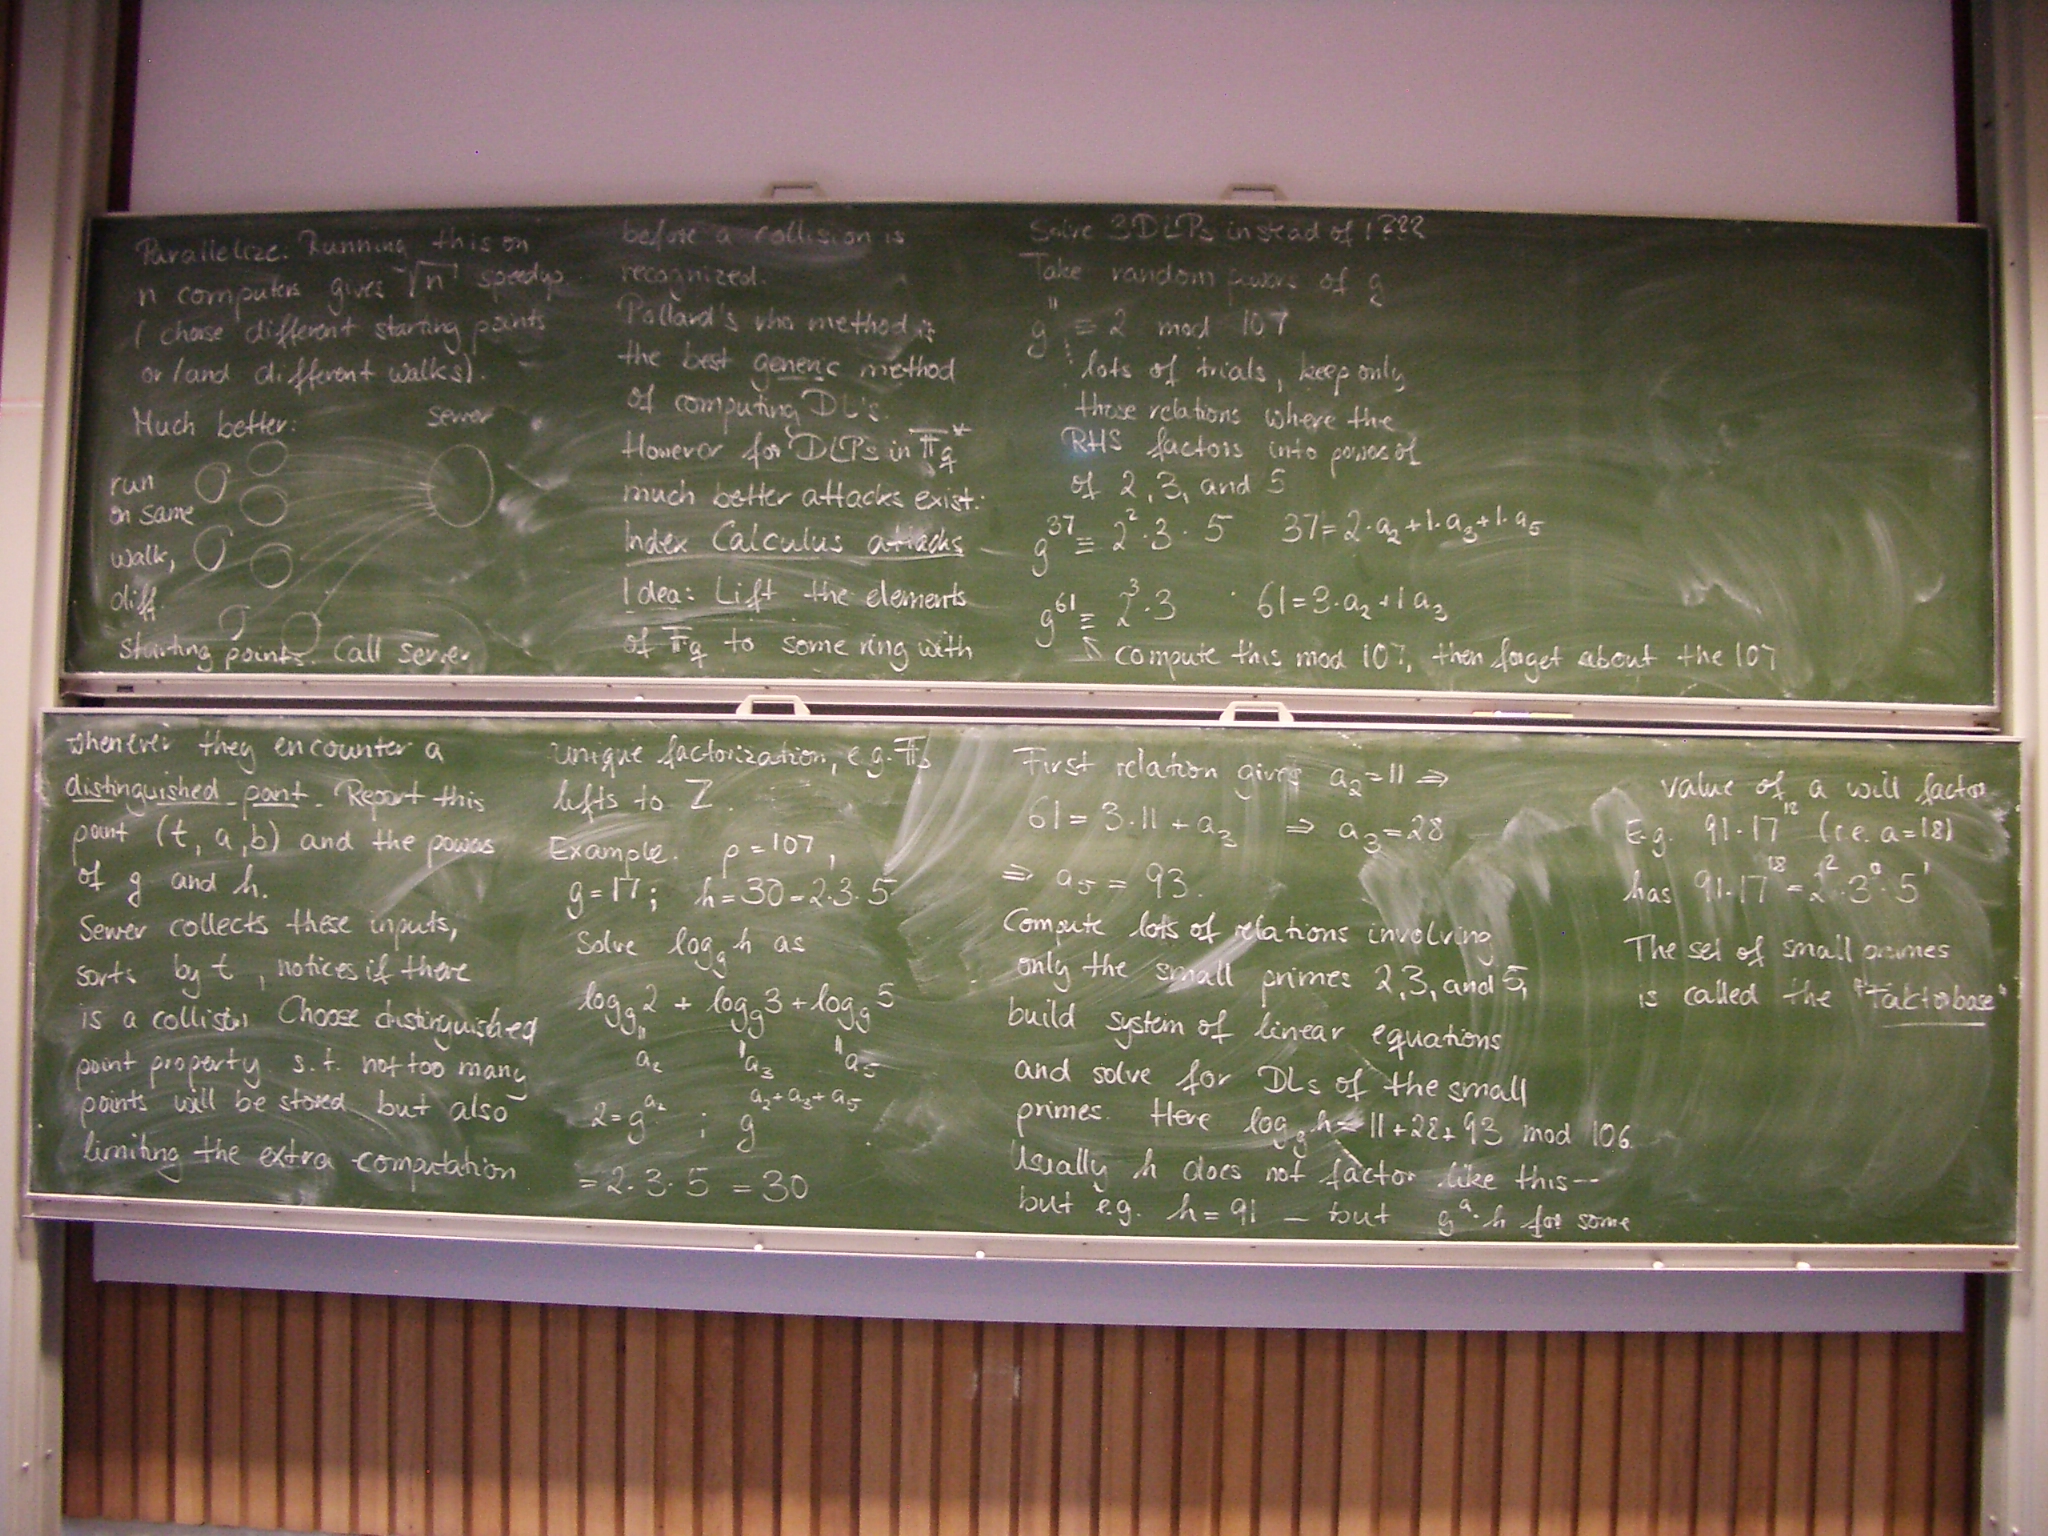 Parallelize: Running this on
n computers gives √n speedup
(chose different starting points
or/and different walks).
Much better:
server
run
on same
walk,
diff.
starting points. Call server
whenever they encounter a
distinguished point. Report this
point (t, a, b) and the powers
of g and h.
Server collects these inputs,
sorts by t, notices if there
is a collision Choose distinguished
point property s.t. not too many
points will be stored but also
limiting the extra computation
before a collision is
recognized.
Pollard's rho method is
the best generic method
of computing DL's.
However for DLPs in 𝔽q*
much better attacks exist:
Index Calculus attacks
Idea: Lift the elements
of 𝔽q to some ring with
unique factorization, e.g. 𝔽p
lifts to Z.
Example. p=107,
g=17; h=30=2·3·5
Solve log_g h as
log_g 2 + log_g 3 + log_g 5
" " "
a₂ a₃ a₅
2=g^a₂ ; g^(a₂+a₃+a₅)
=2·3·5 =30
Solve 3DLPs instead of 1???
Take random powers of g
g^11 ≡ 2 mod 107
⋮ lots of trials, keep only
those relations where the
RHS factors into powers of
of 2, 3, and 5
g^37 ≡ 2²·3·5 37=2·a₂+1·a₃+1·a₅
g^61 ≡ 2³·3 61=3·a₂+1a₃
↖ compute this mod 107, then forget about the 107
First relation gives a₂=11 ⇒
61=3·11+a₃ ⇒ a₃=28
⇒ a₅=93.
Compute lots of relations involving
only the small primes 2,3, and 5,
build system of linear equations
and solve for DLs of the small
primes. Here log_g h = 11+28+93 mod 106.
Usually h does not factor like this --
but e.g. h=91 – but g^a·h for some
value of a will factor
E.g. 91·17^18 (i.e. a=18)
has 91·17^18=2²·3⁰·5¹
The set of small primes
is called the "Faktorbase"